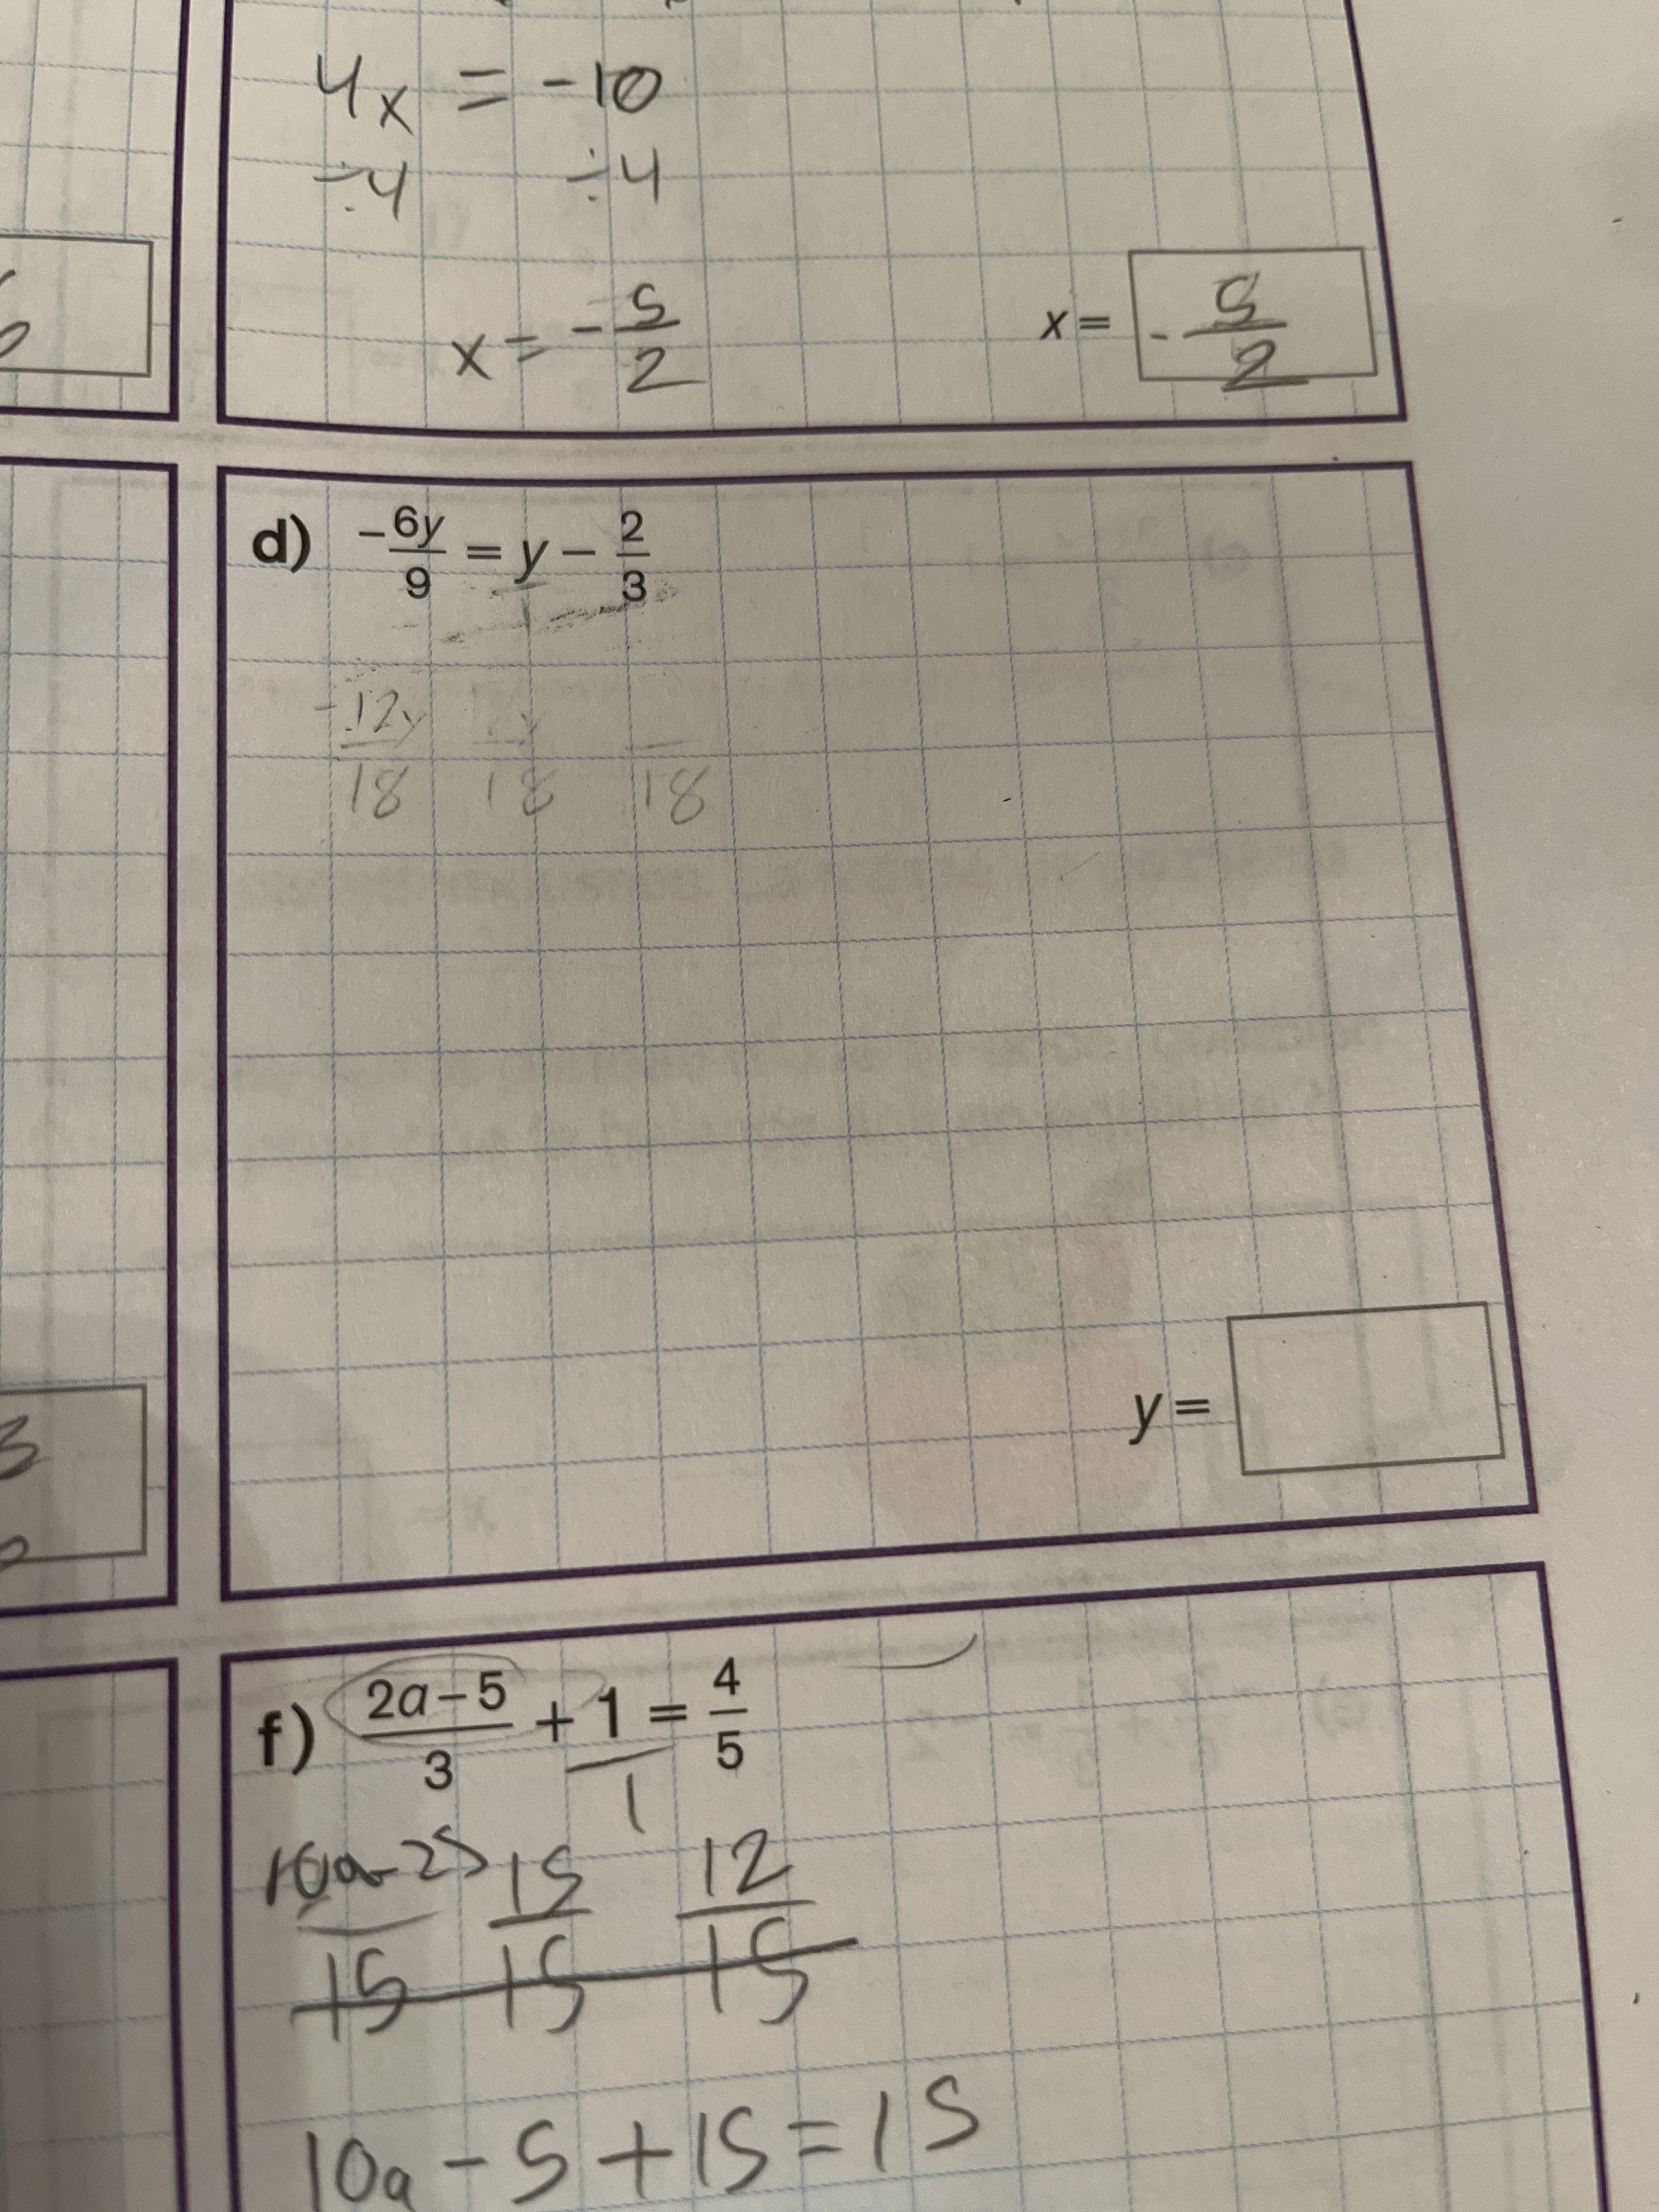 4x = -10
÷4 ÷4
x = -5/2
x = -5/2
d) -6y/9 = y - 2/3
1
-12y/18 y/18 /18
y =
3
f) 2a-5/3 + 1 = 4/5
1
10a-25/15 15/15 12/15
10a - 5 + 15 = 15